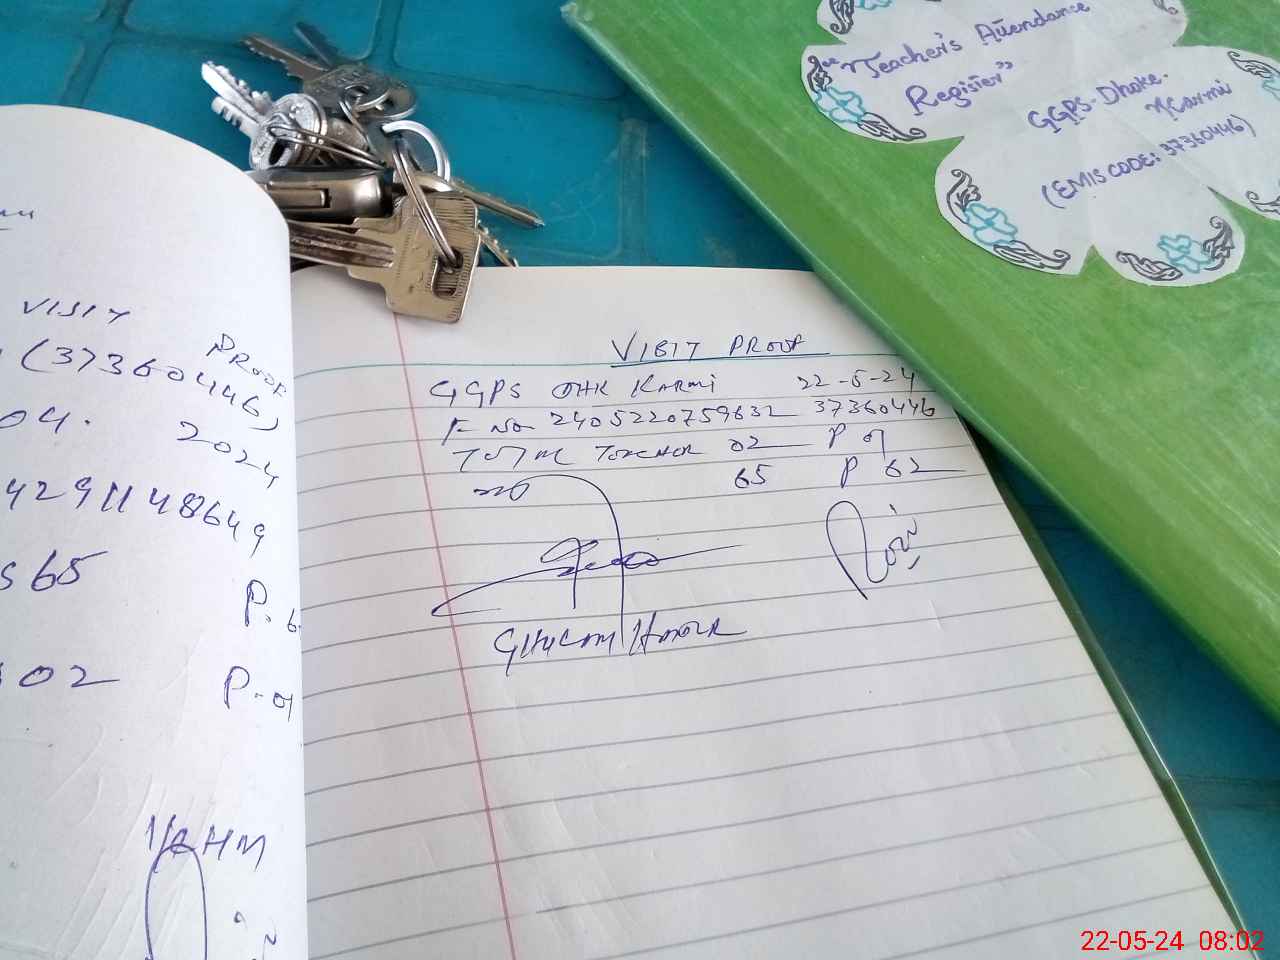 "Teacher's Attendance
Register"
GGPS-Dhoke.
KKarmi
(EMIS CODE: 37360446)
VISIT
PROOF
(37360446)
04. 2024
4291148649
65
P.
02 P-01
HM
VISIT PROOF
GGPS DHK KARMI 22-5-24
F No 2405220759632 37360446
TOTAL TEACHER 02 P 01
65 P 62
GHULAM
22-05-24 08:02